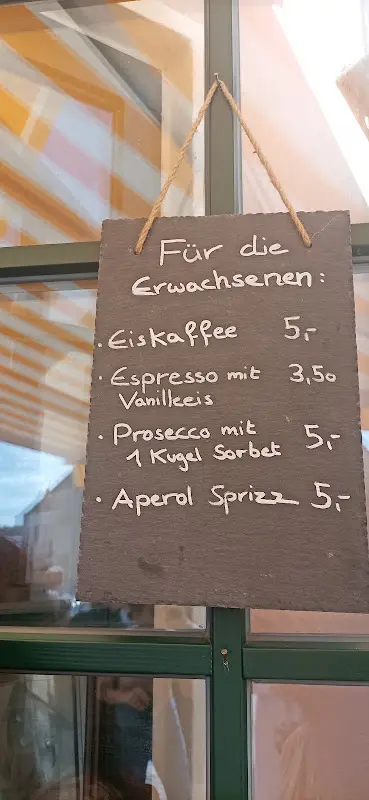 Für die
Erwachsenen:
· Eiskaffee 5,-
· Espresso mit 3,50
Vanilleeis
· Prosecco mit 5,-
1 Kugel Sorbet
· Aperol Sprizz 5,-